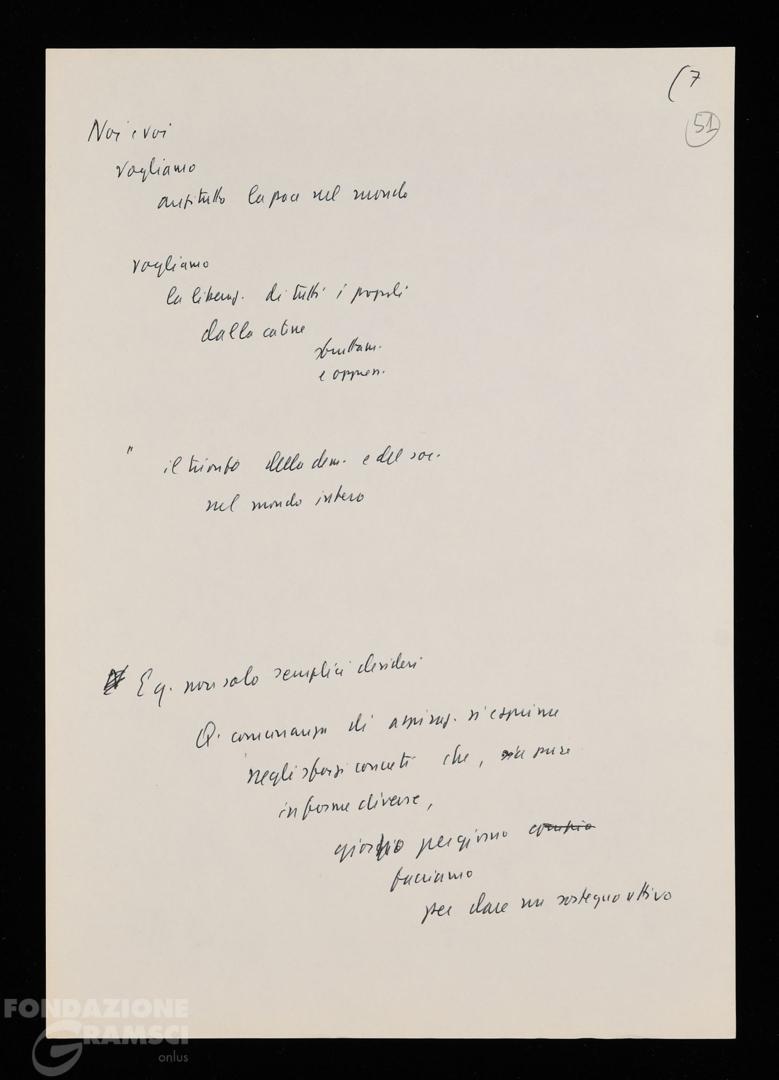 (7
51
Noi e voi
vogliamo
anzitutto la pace nel mondo
vogliamo
la liberaz. di tutti i popoli
dalle catene
sfruttam.
e oppress.
" il trionfo della dem. e del soc.
nel mondo intero
E q. non solo semplici desideri
Q. comunanza di aspiraz. si esprime
negli sforzi concreti che, sia pure
in forme diverse,
giorno per giorno compia
facciamo
per dare un sostegno attivo
FONDAZIONE
GRAMSCI
onlus